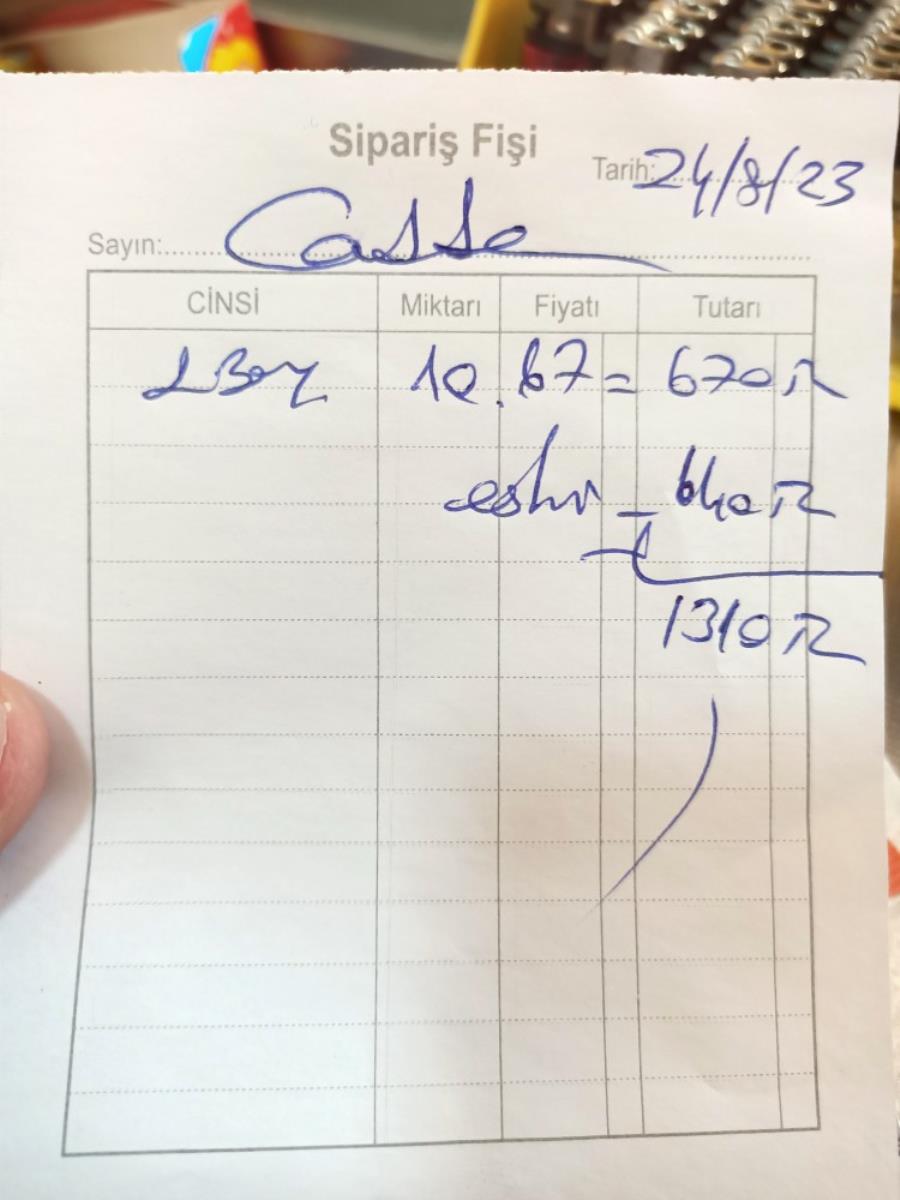 Sipariş Fişi
Tarih: 24/8/23
Sayın:
CİNSİ Miktarı Fiyatı Tutarı
10 . 67 = 670 TL
640 TL
1310 TL